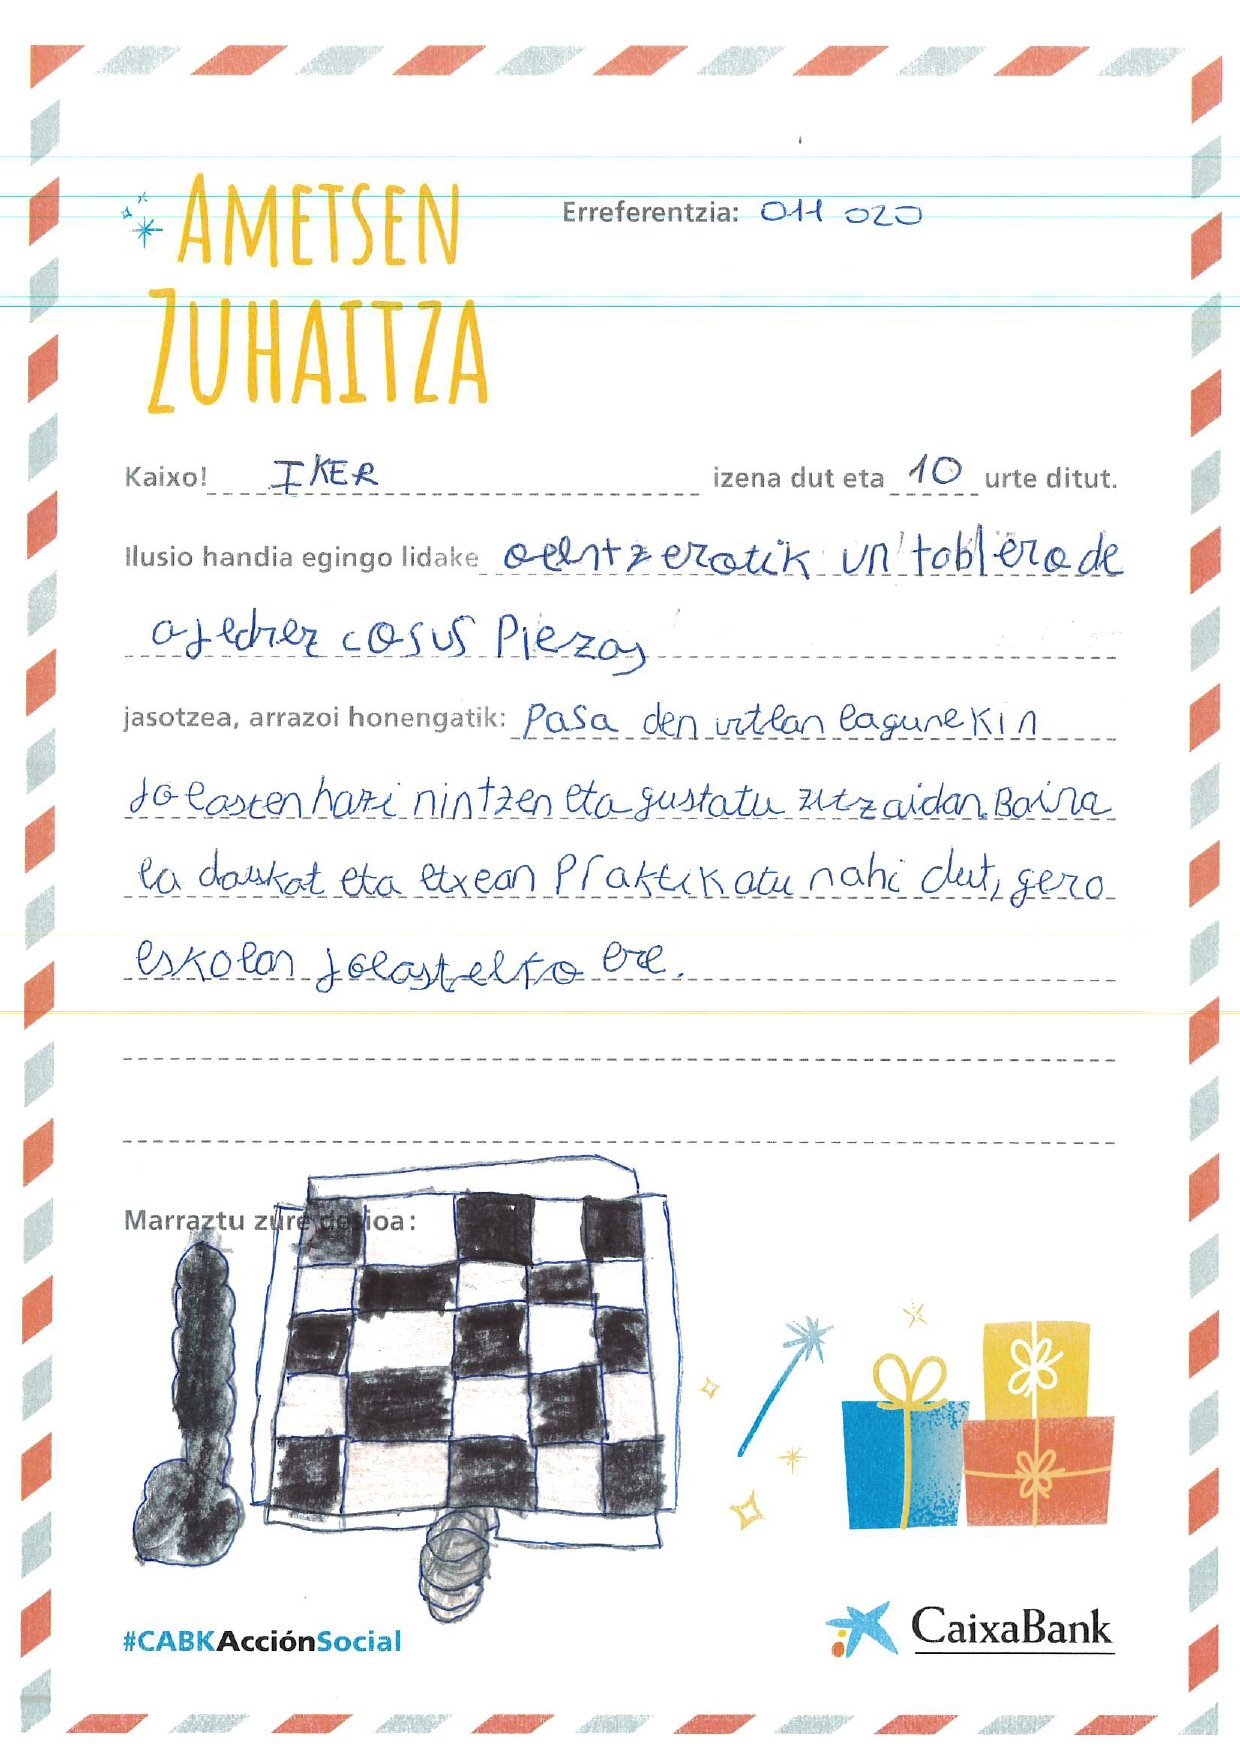 AMETSEN
ZUHAITZA
Erreferentzia: 011 020
Kaixo! IKER izena dut eta 10 urte ditut.
Ilusio handia egingo lidake oelntzerotik un tablero de
ajedrez cosus Piezas
jasotzea, arrazoi honengatik: Pasa den urtean lagunekin
Jolasten hazi nintzen eta gustatu zitzaidan. Baina
ez daukat eta etxean Praktikatu nahi dut, gero
eskolan jolasteko ere.
Marraztu zure desioa:
#CABKAcciónSocial
CaixaBank